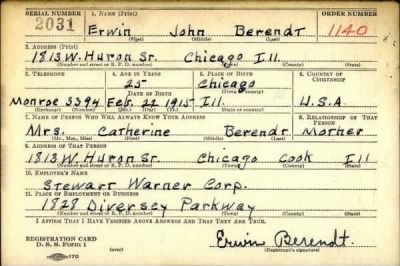 SERIAL NUMBER 1. NAME (Print) ORDER NUMBER
2031 Erwin John Berendt 1140
(First) (Middle) (Last)
2. ADDRESS (Print)
1813 W. Huron St. Chicago Ill.
(Number and street or R. F. D. number) (Town) (County) (State)
3. TELEPHONE 4. AGE IN YEARS 5. PLACE OF BIRTH 6. COUNTRY OF CITIZENSHIP
25 Chicago
DATE OF BIRTH (Town or county)
Monroe 3394 Feb. 22 1915 Ill. U.S.A.
(Exchange) (Number) (Mo.) (Day) (Yr.) (State or country)
7. NAME OF PERSON WHO WILL ALWAYS KNOW YOUR ADDRESS 8. RELATIONSHIP OF THAT PERSON
Mrs. Catherine Berendt Mother
(Mr., Mrs., Miss) (First) (Middle) (Last)
9. ADDRESS OF THAT PERSON
1813 W. Huron St. Chicago Cook Ill
(Number and street or R. F. D. number) (Town) (County) (State)
10. EMPLOYER'S NAME
Stewart Warner Corp.
11. PLACE OF EMPLOYMENT OR BUSINESS
1828 Diversey Parkway
(Number and street or R. F. D. number) (Town) (County) (State)
I AFFIRM THAT I HAVE VERIFIED ABOVE ANSWERS AND THAT THEY ARE TRUE.
REGISTRATION CARD
D. S. S. Form 1 (over) Erwin Berendt.
(Registrant's signature)